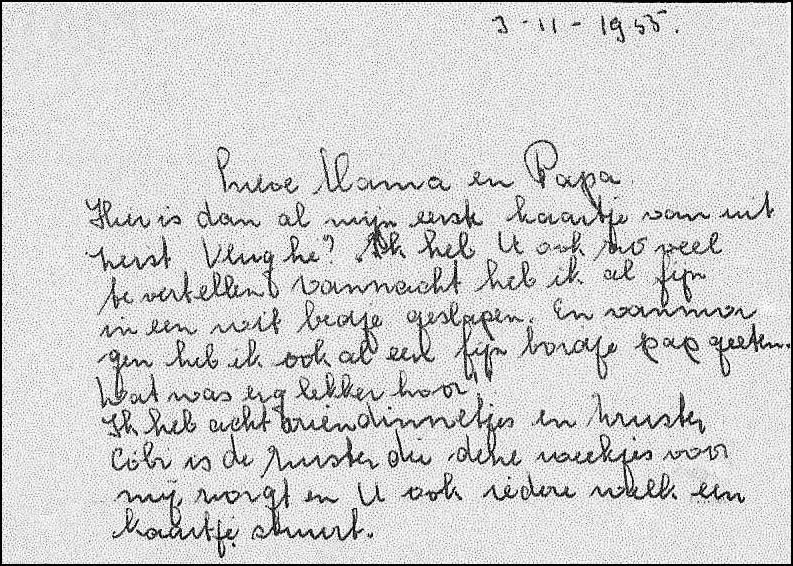 3-11-1955.
Lieve Mama en Papa
Hier is dan al mijn eerste kaartje van uit
Zeist Vlug he? Ik heb U ook zo veel
te vertellen vannacht heb ik al fijn
in een wit bedje geslapen. En vanmor
gen heb ik ook al een fijn bordje pap geeten.
Wat was erg lekker hoor!
Ik heb acht vriendinnetjes en zuster
Cobi is de zuster die deze weekjes voor
mij zorgt en U ook iedere week een
kaartje stuurt.